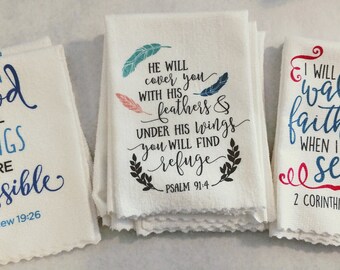 God
NGS
RE
ssible
ew 19:26
HE WILL
cover you
WITH HIS
feathers &
UNDER HIS WINGS
you WILL FIND
refuge
PSALM 91:4
I WILL
wal
faith
WHEN I
se
2 CORINTH